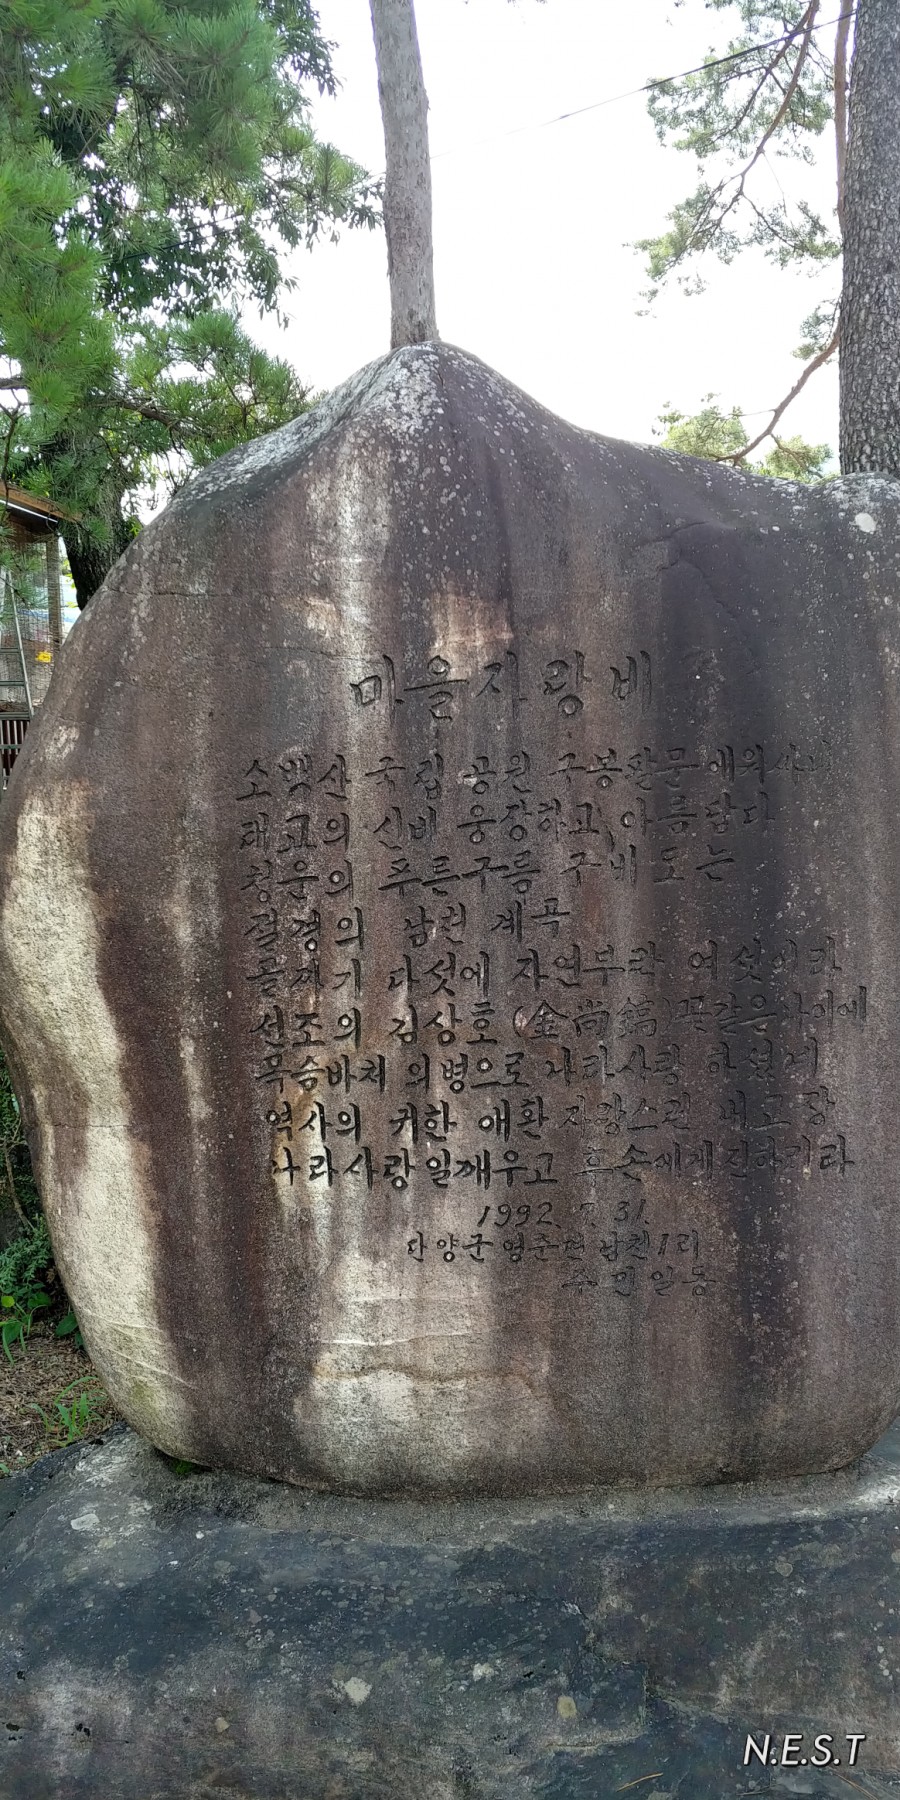 마을자랑비
소백산 국립 공원 구봉팔문에워싸여
태고의 신비 웅장하고, 아름답다
청운의 푸른구름 구비 도는
절경의 남천 계곡
골짜기 다섯에 자연부락 여섯이라
선조의 김상호 (金尚鎬)꽃같은나이에
목숨바쳐 의병으로 나라사랑 하셨네
역사의 귀한 애환 자랑스런 내고장
나라사랑일깨우고 후손에게전하리라
1992. 7. 31.
단양군 영춘면 남천1리
주민일동
N.E.S.T